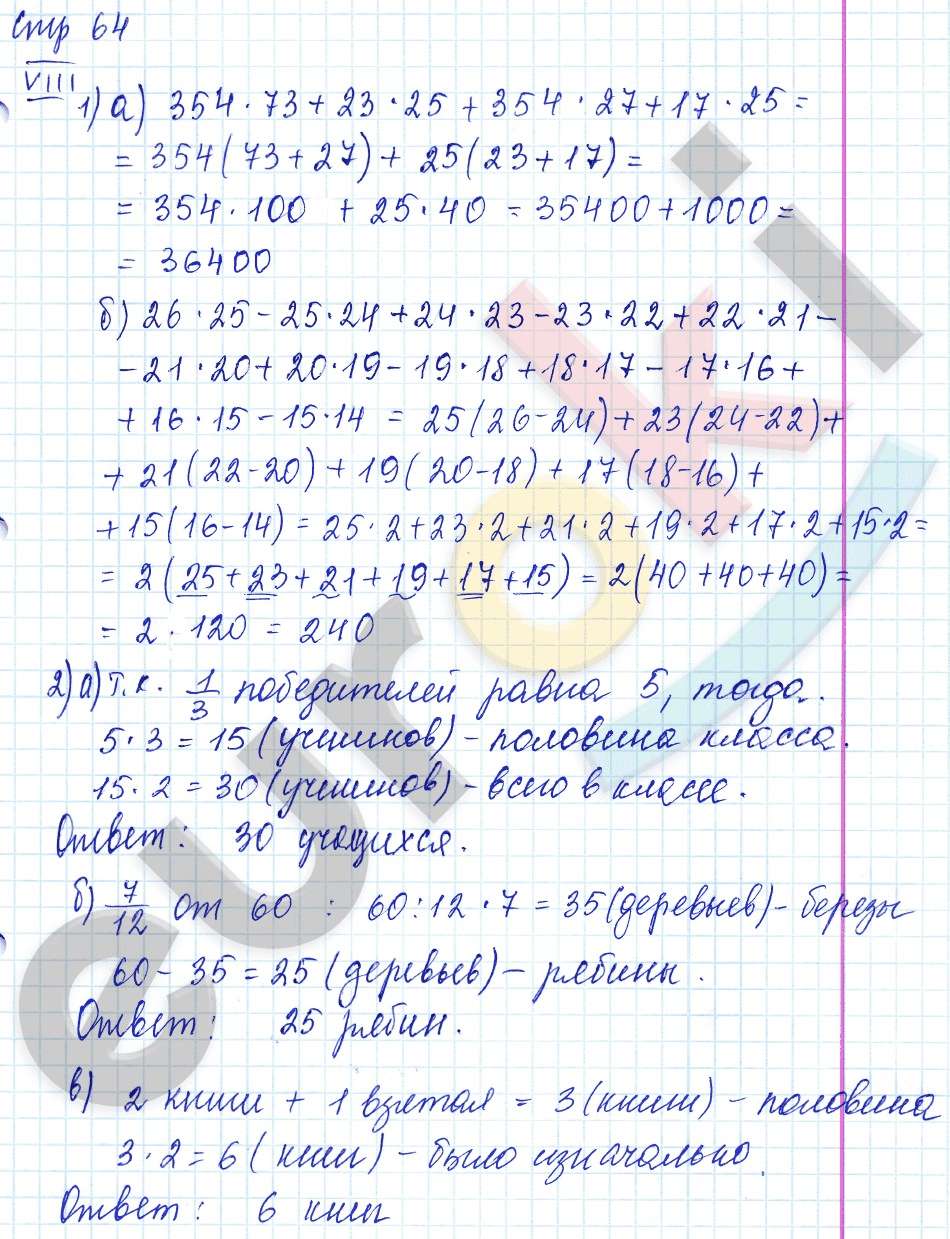 Стр 64
VIII
1) а) 354 · 73 + 23 · 25 + 354 · 27 + 17 · 25 =
= 354(73 + 27) + 25(23 + 17) =
= 354 · 100 + 25 · 40 = 35400 + 1000 =
= 36400
б) 26 · 25 - 25 · 24 + 24 · 23 - 23 · 22 + 22 · 21 -
- 21 · 20 + 20 · 19 - 19 · 18 + 18 · 17 - 17 · 16 +
+ 16 · 15 - 15 · 14 = 25(26 - 24) + 23(24 - 22) +
+ 21(22 - 20) + 19(20 - 18) + 17(18 - 16) +
+ 15(16 - 14) = 25 · 2 + 23 · 2 + 21 · 2 + 19 · 2 + 17 · 2 + 15 · 2 =
= 2(25 + 23 + 21 + 19 + 17 + 15) = 2(40 + 40 + 40) =
= 2 · 120 = 240
2) а) Т.к. 1/3 победителей равна 5, тогда.
5 · 3 = 15 (учеников) - половина класса.
15 · 2 = 30 (учеников) - всего в классе.
Ответ: 30 учащихся.
б) 7/12 от 60 : 60 : 12 · 7 = 35 (деревьев) - березы
60 - 35 = 25 (деревьев) - рябины.
Ответ: 25 рябин.
в) 2 книги + 1 взятая = 3 (книги) - половина
3 · 2 = 6 (книг) - было изначально.
Ответ: 6 книг
euroki